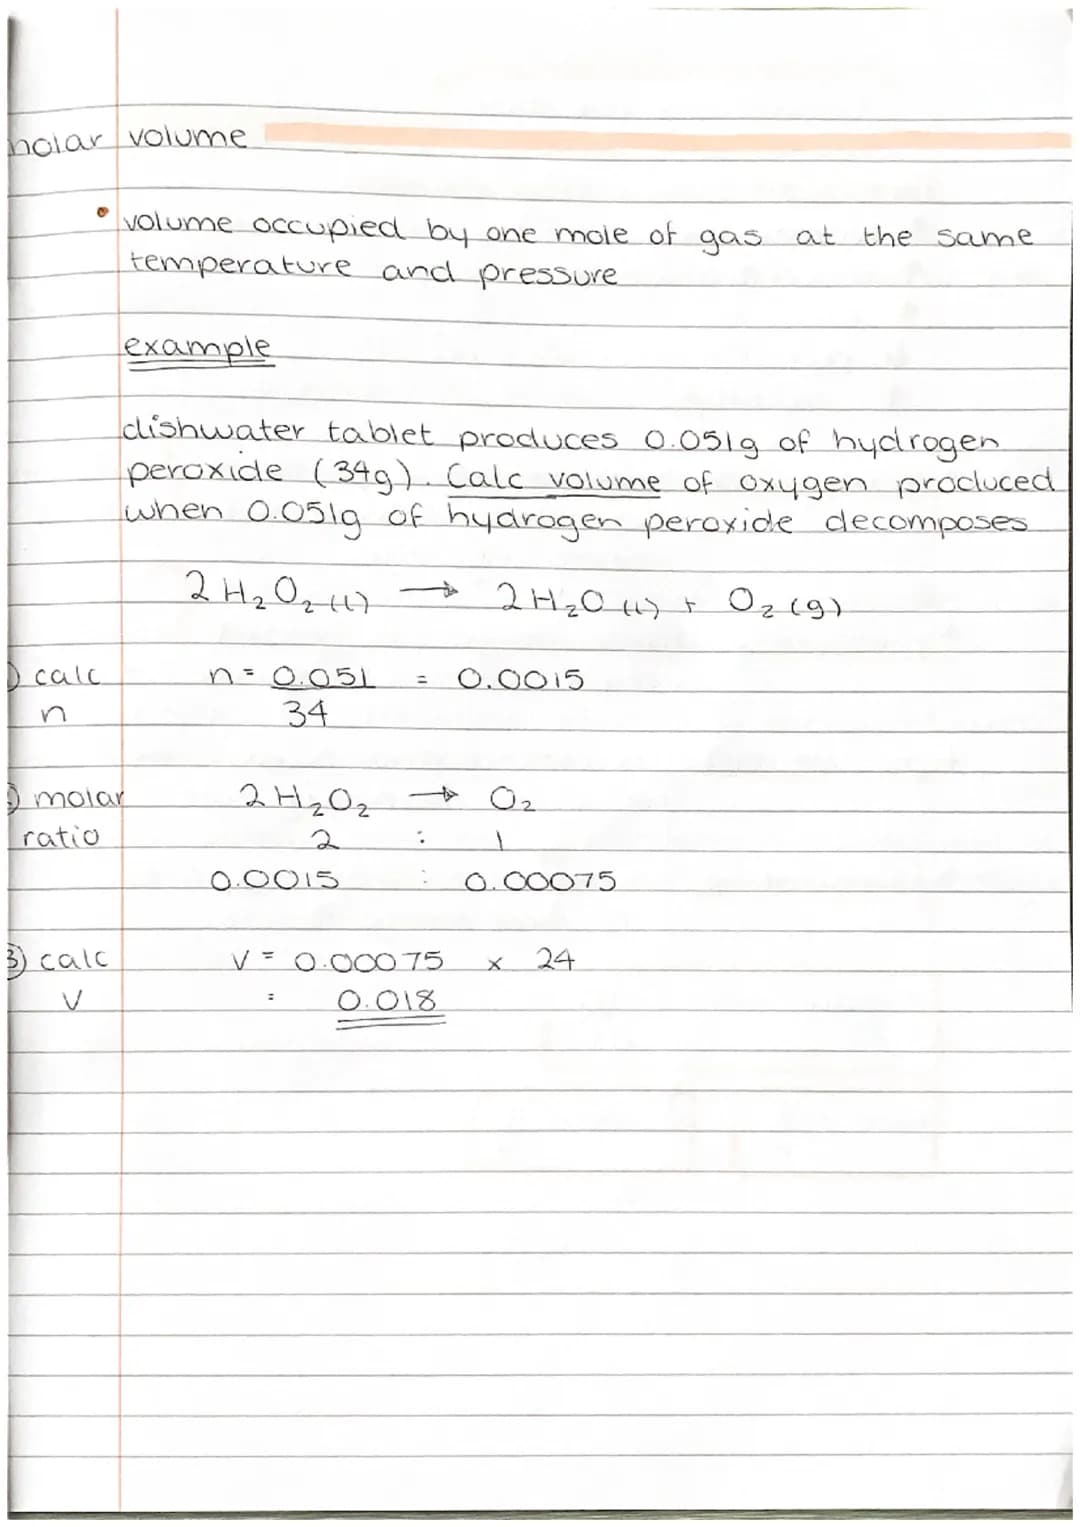 molar volume
• volume occupied by one mole of gas at the same
temperature and pressure
example
dishwater tablet produces 0.051g of hydrogen
peroxide (34g). Calc volume of oxygen produced
when 0.051g of hydrogen peroxide decomposes
2H₂O₂(l) → 2H₂O(l) + O₂(g)
1) calc n = 0.051 = 0.0015
n 34
2) molar 2H₂O₂ → O₂
ratio 2 : 1
0.0015 : 0.00075
3) calc V = 0.00075 x 24
V = 0.018